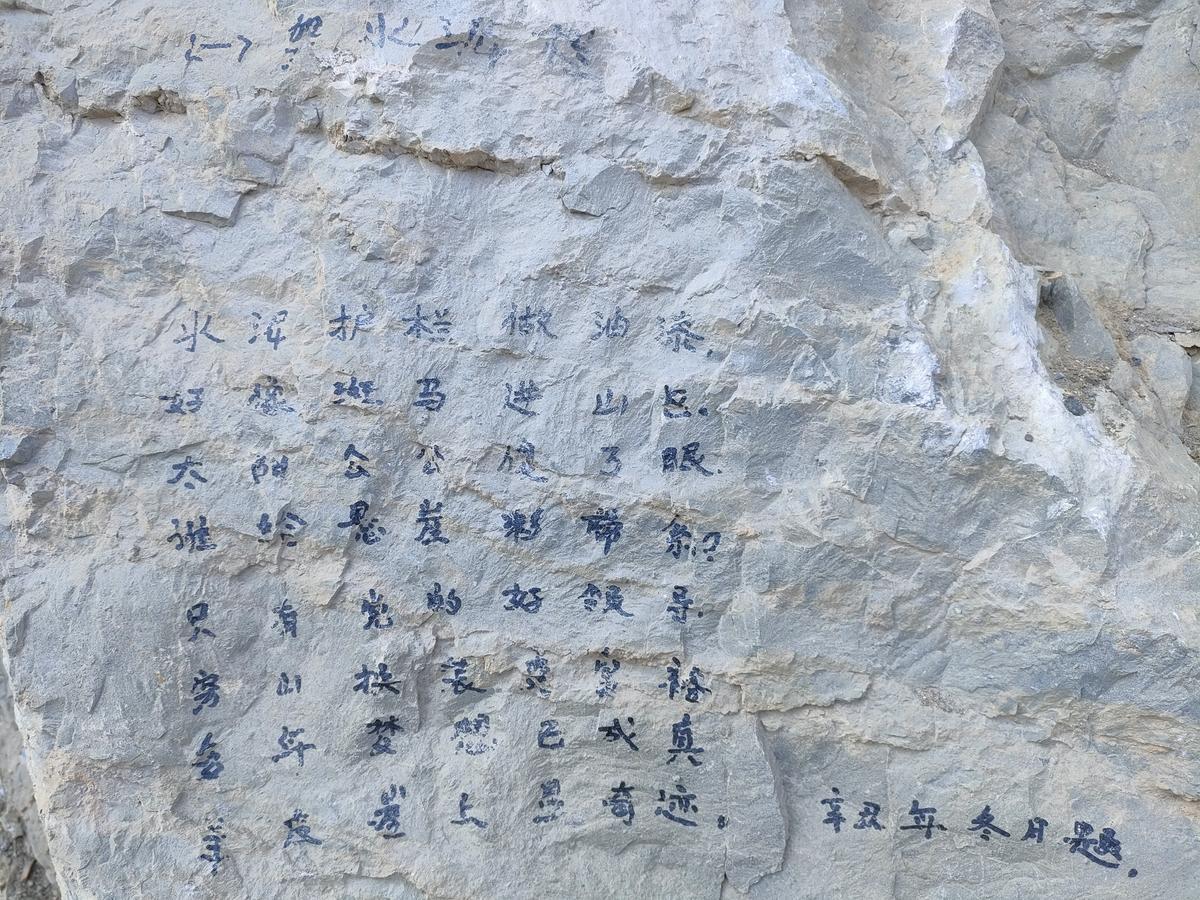 (一)
水泥护栏做油漆,
好像斑马进山丘.
太阳公公使了眼.
谁给悬崖彩带系?
只有党的好领导.
穷山换装变富裕
多年梦想已成真
美崖上显奇迹。
辛丑年冬月题.